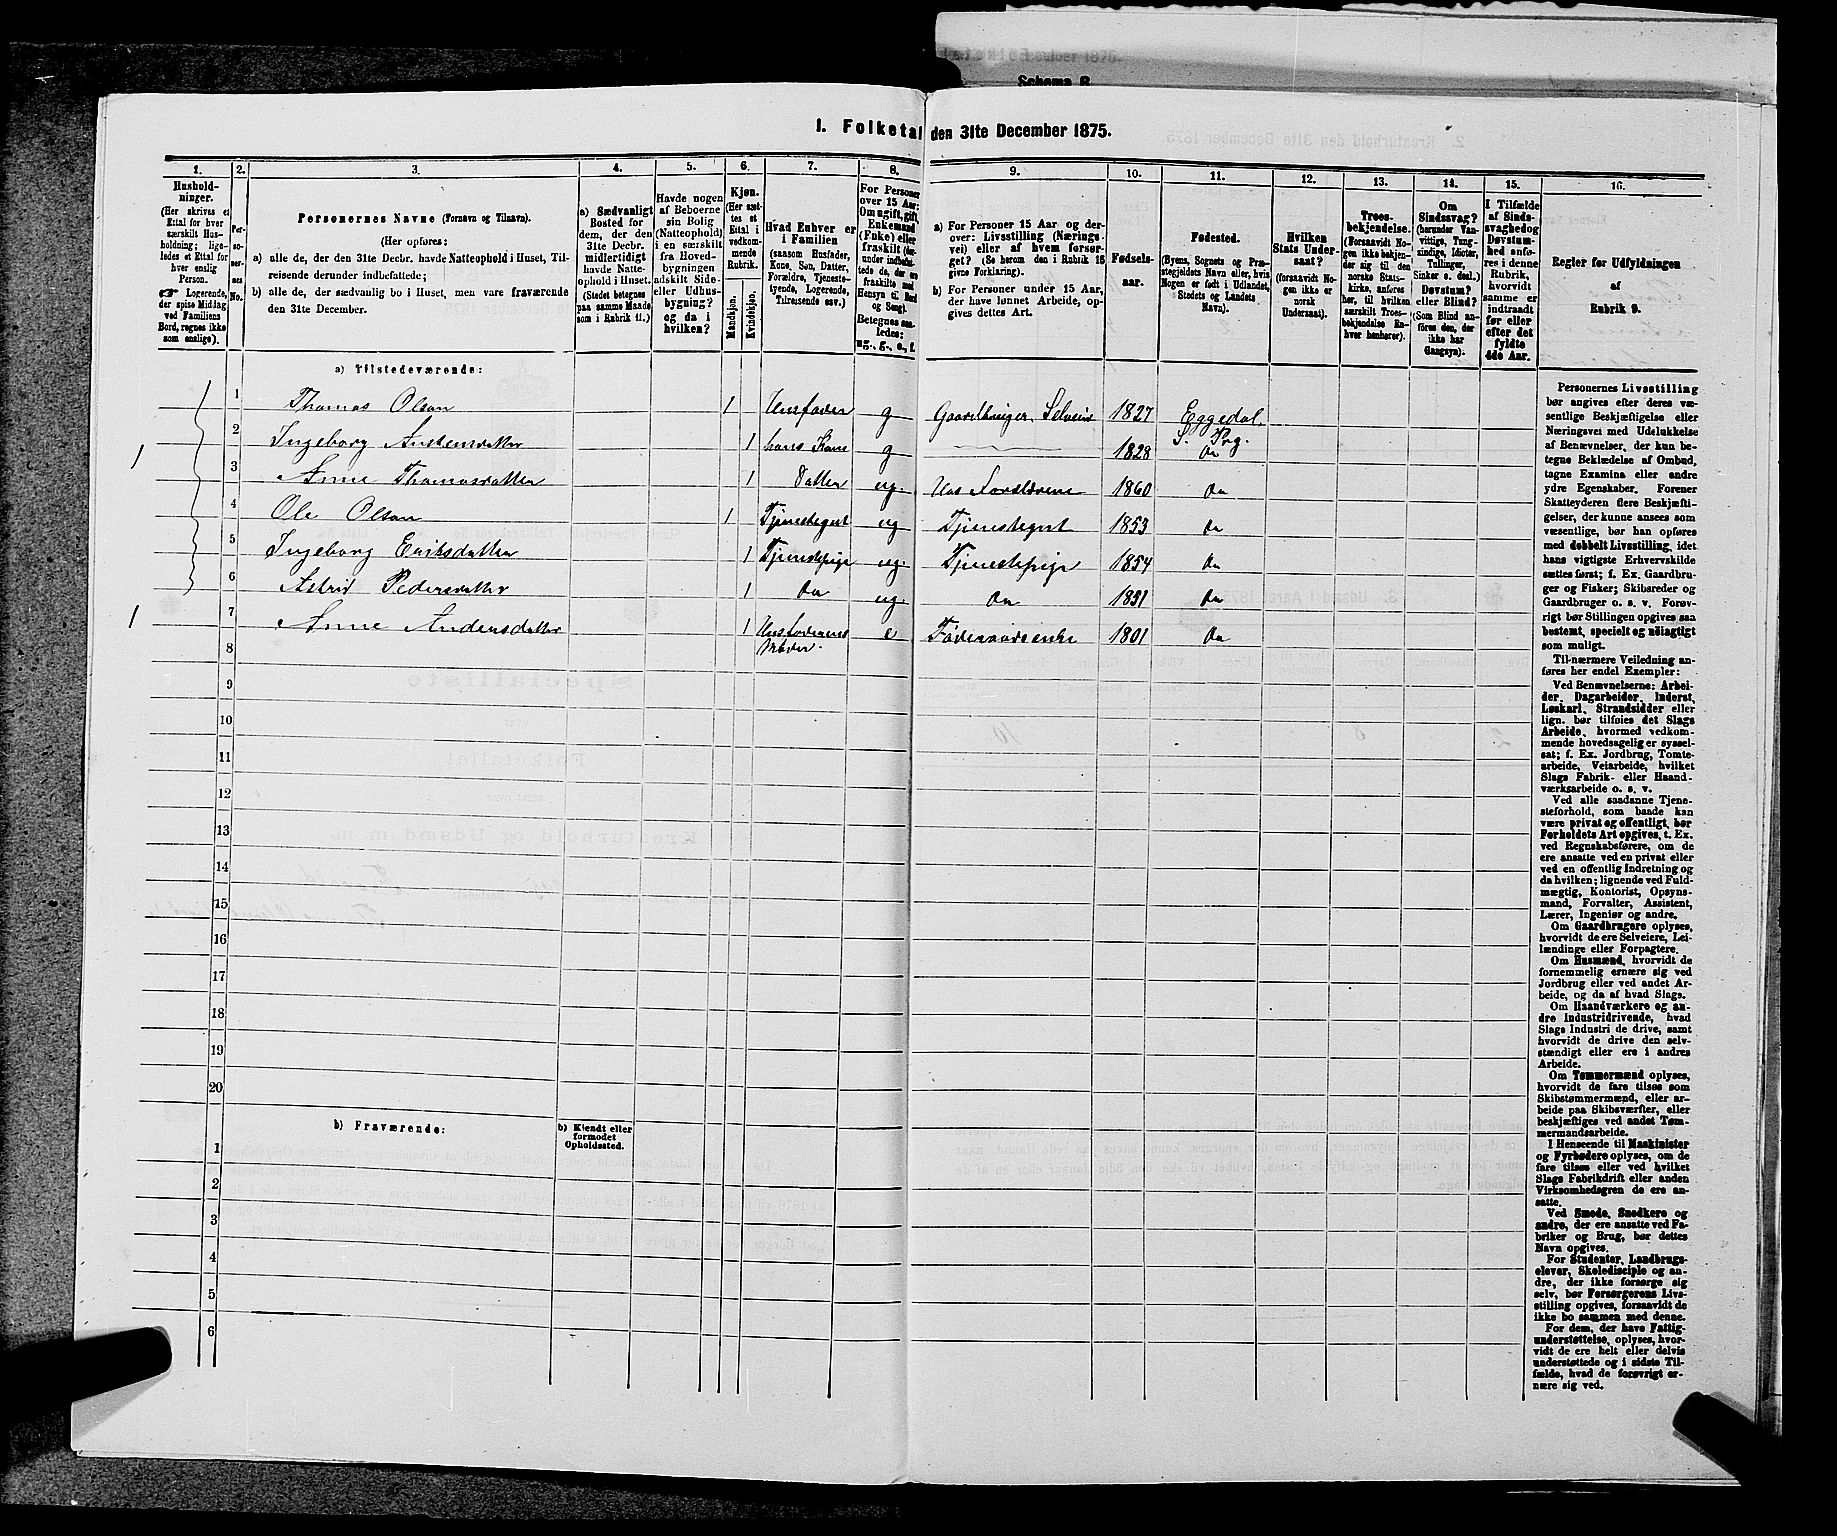 Schema B
1. Folketal den 31te December 1875.
1. 2. 3. 4. 5. 6. 7. 8. 9. 10. 11. 12. 13. 14. 15. 16.
Husholdninger.
(Her skrives et Ettal for hver særskilt Husholdning; ligeledes et Ettal for hver enslig Person.
☞ Logerende, der spise Middag ved Familiens Bord, regnes ikke som enslige).
Personernes No.
Personernes Navne (Fornavn og Tilnavn).
(Her opføres:
a) alle de, der den 31te Decbr. havde Natteophold i Huset, Tilreisende derunder indbefattede;
b) alle de, der sædvanlig bo i Huset, men vare fraværende den 31te December.
a) Sædvanligt Bosted for dem, der den 31te Decbr. midlertidigt havde Natteophold i Huset.
(Stedet betegnes paa samme Maade som i Rubrik 11.)
Havde nogen af Beboerne sin Bolig (Natteophold) i en særskilt fra Hovedbygningen adskilt Side- eller Udhusbygning? og da i hvilken?
Kjøn.
(Her sættes et Ettal i vedkommende Rubrik.
Mandkjøn.
Kvindekjøn.
Hvad Enhver er i Familien
(saasom Husfader, Kone, Søn, Datter, Forældre, Tjenestetyende, Logerende, Tilreisende osv.)
For Personer over 15 Aar: Om ugift, gift, Enkemand (Enke) eller fraskilt
Betegnes saaledes:
ug., g., e., f.
a) For Personer 15 Aar og derover: Livsstilling (Næringsvei) eller af hvem forsørget? (Se herom den i Rubrik 16 givne Forklaring).
b) For Personer under 15 Aar, der have lønnet Arbeide, opgives dettes Art.
Fødselsaar.
Fødested.
(Byens, Sognets og Præstegjeldets Navn eller, hvis Nogen er født i Udlandet, Stedets og Landets Navn).
Hvilken Stats Undersaat?
(forsaavidt Nogen ikke er norsk Undersaat).
Troesbekjendelse.
(Forsaavidt Nogen ikke bekjender sig til den norske Statskirke, anføres her, til hvilken særskilt Troesbekjendelse Enhver henhører).
Om Sindssvag?
(herunder Vanvittige, Tungsindige, Idioter, Tullinger, Sinker o. desl.)
Døvstum? eller Blind?
(Som Blind anføres den, der ikke har Gangsyn).
I Tilfælde af Sindssvaghed og Døvstumhed anføres i denne Rubrik, hvorvidt samme er indtraadt før eller efter det fyldte 4de Aar.
Regler for Udfyldningen
af
Rubrik 9.
a) Tilstedeværende:
1 Thomas Olsen 1 Husfader g Gaardbruger Selveier 1827 Eggedal S. Prg.
2 Ingeborg 1 hans Kone g 1828 do
3 Anne Thomasdatter 1 Datter ug. Hos Forældrene 1860 do
4 Ole Olsen 1 Tjenestegut ug Tjenestegut 1853 do
5 Ingeborg Eriksdatter 1 Tjenestepige ug. Tjenestepige 1854 do
6 Astrid Pedersdatter 1 do ug. do 1851 do
7 Anne Andersdatter 1 Husfaderens Moder. e Føderaadsenke 1801 do
8
9
10
11
12
13
14
15
16
17
18
19
20
b) Fraværende:
b) Kjendt eller formodet Opholdssted.
1
2
3
4
5
6
Personernes Livsstilling
bør angives efter deres væ-
sentlige Beskjæftigelse eller
Næringsvei med Udelukkelse
af Benævnelser, der kun be-
tegne Beklædelse af Ombud,
tagne Examina eller andre
ydre Egenskaber. Forener
Skatteyderen flere Beskjæfti-
gelser, der kunne ansees som
væsentlige, bør han opføres
med dobbelt Livsstilling, idet
hans vigtigste Erhvervskilde
sættes først; f. Ex. Gaardbru-
ger og Fisker; Skibsreder og
Gaardbruger o. s. v. Forøv-
rigt bør Stillingen opgives saa
bestemt, specielt og nøiagtigt
som muligt.
Til nærmere Veiledning an-
føres her endel Exempler:
Ved Benævnelserne: Arbei-
der, Dagarbeider, Inderst,
Løskarl, Strandsidder eller
lign. bør tilføies det Slags
Arbeide, hvormed vedkom-
mende hovedsagelig er syssel-
sat; f. Ex. Jordbrug, Tomte-
arbeide, Veiarbeide, hvilket
Slags Fabrik- eller Haand-
værksarbeide o. s. v.
Ved alle saadanne Tjene-
steforhold, som baade kan
være privat og offentligt, bør
Forholdets Art opgives, t. Ex.
ved Regnskabsførere, om de
ere ansatte ved en privat eller
ved en offentlig Indretning og
da hvilken; lignende ved Fuld-
mægtig, Kontorist, Opsyns-
mand, Forvalter, Assistent,
Lærer, Ingeniør og andre.
Om Gaardbrugere oplyses,
hvorvidt de ere Selveiere, Lei-
lændinge eller Forpagtere.
Om Husmænd, hvorvidt de
fornemmelig ernære sig ved
Jordbrug eller ved andet Ar-
beide, og da af hvad Slags.
Om Haandværkere og an-
dre Industridrivende, hvad
Slags Industri de drive, samt
hvorvidt de drive den selv-
stændigt eller ere i andres
Arbeide.
Om Tømmermænd oplyses,
hvorvidt de fare tilsøs som
Skibstømmermænd, eller ar-
beide paa Skibsværfter, eller
beskjæftiges ved andet Tøm-
mermandsarbeide.
I Henseende til Maskinister
og Fyrbødere oplyses, om de
fare tilsøs eller ved hvilket
Slags Fabrikdrift eller anden
Virksomhedsgren de ere an-
satte.
Ved Smede, Snedkere og
andre, der ere ansatte ved Fa-
briker og Brug, bør dettes
Navn opgives.
For Studenter, Landbrugs-
elever, Skoledisciple og an-
dre, der ikke forsørge sig
selv, bør Forsørgerens Livs-
stilling opgives, forsaavidt de
ikke bo sammen med denne.
For dem, der have Fattig-
understøttelse, oplyses, hvor-
vidt de ere helt eller delvis
understøttede og i sidste Til-
fælde, hvad de forøvrigt er-
nære sig ved.